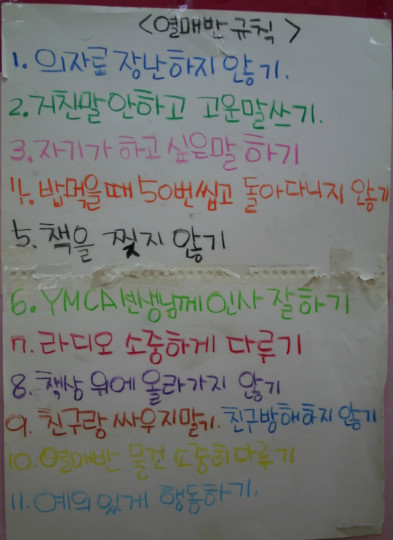 <열매반 규칙>
1. 의자로 장난하지 않기.
2. 거친말 안하고 고운말쓰기.
3. 자기가 하고 싶은말 하기
4. 밥먹을때 50번씹고 돌아다니지 않기
5. 책을 찢지 않기
6. YMCA 선생님께 인사 잘하기
7. 라디오 소중하게 다루기
8. 책상 위에 올라가지 않기
9. 친구랑 싸우지말기. 친구방해하지 않기
10. 열매반 물건 소중히다루기
11. 예의있게 행동하기.